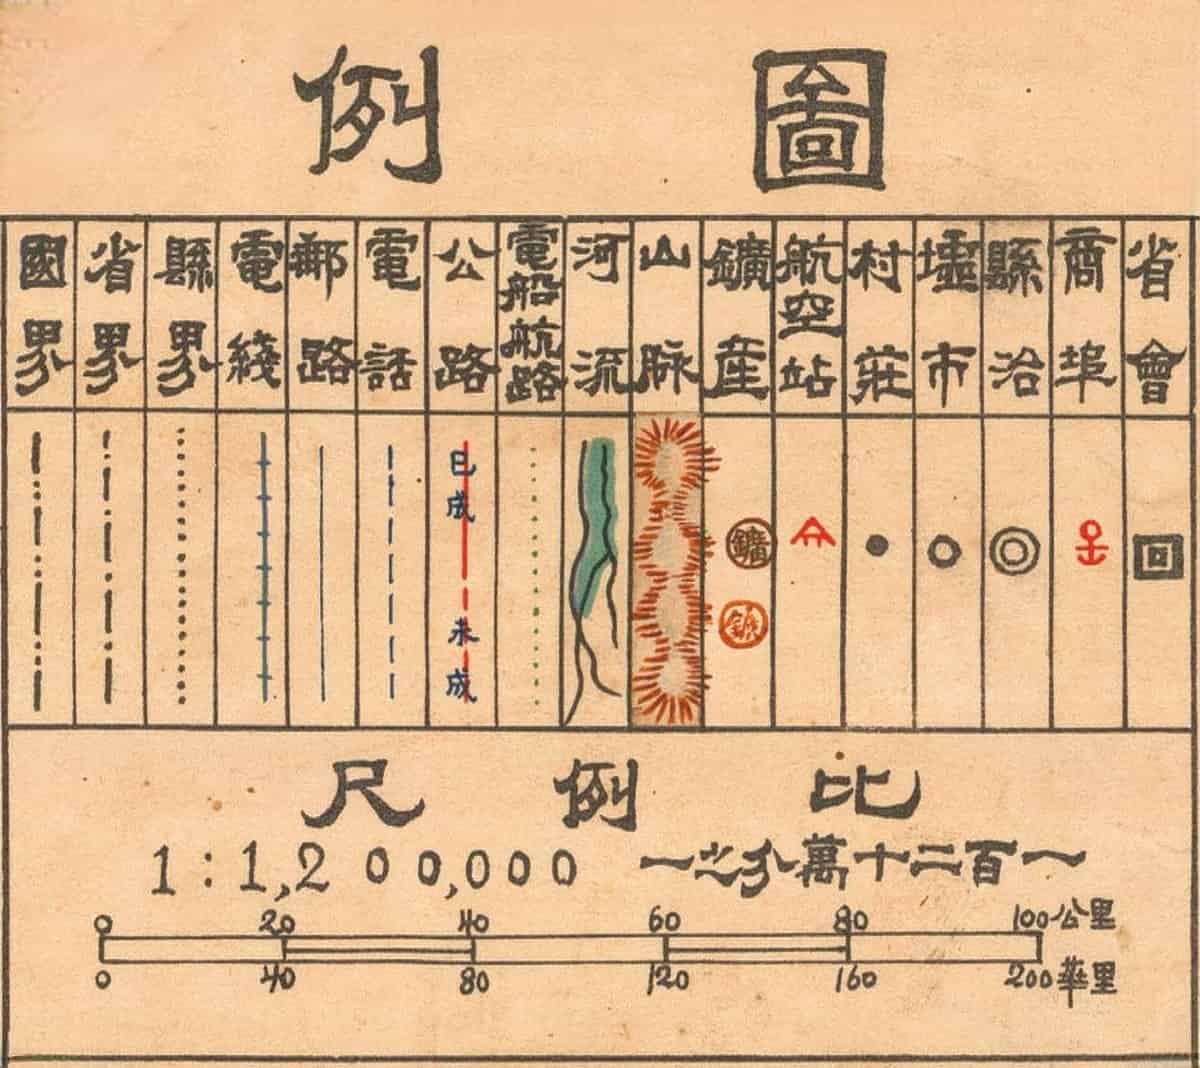 圖例
省會
商埠
縣治
墟市
村莊
航空站
鑛産
山脉
河流
電船航路
公路
電話
郵路
電綫
縣界
省界
國界
鑛
已成
未成
比例尺
一百二十萬分之一
1:1,200,000
0 20 40 60 80 100公里
0 40 80 120 160 200華里